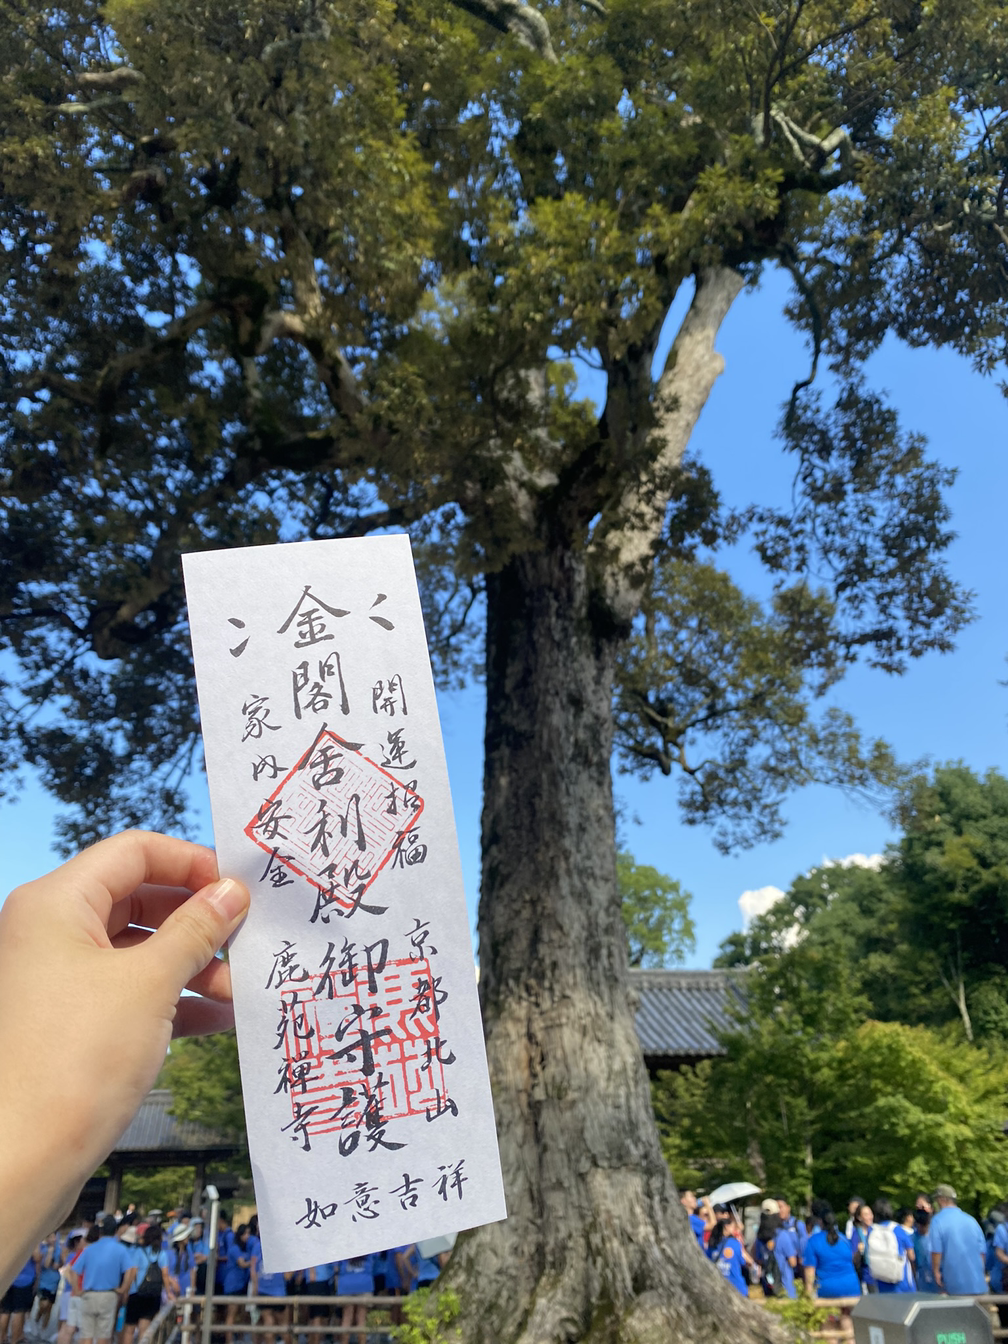 金閣舎利殿御守護
開運招福
家内安全
京都北山
鹿苑禅寺
如意吉祥
PUSH